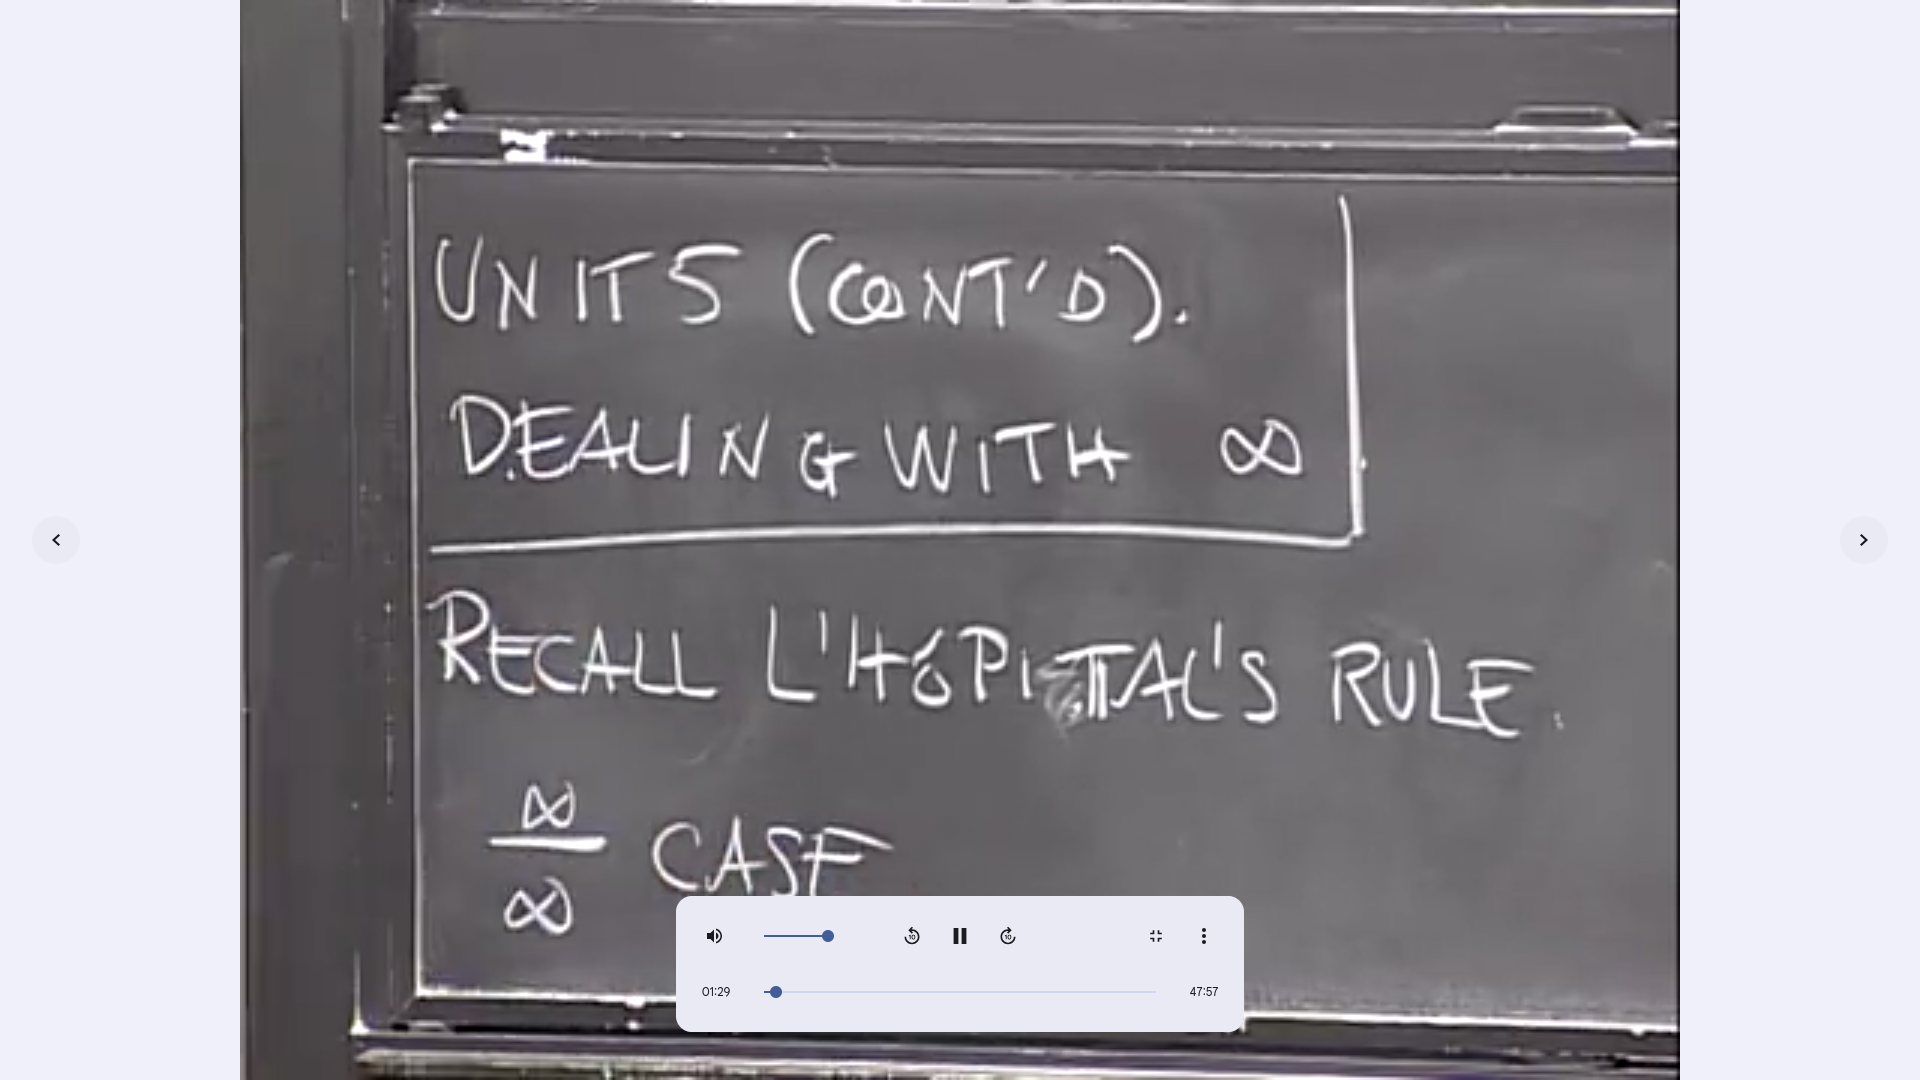 UNIT 5 (CONT'D).
DEALING WITH ∞
RECALL L'HÓPITAL'S RULE.
∞
∞ CASE
01:29 47:57